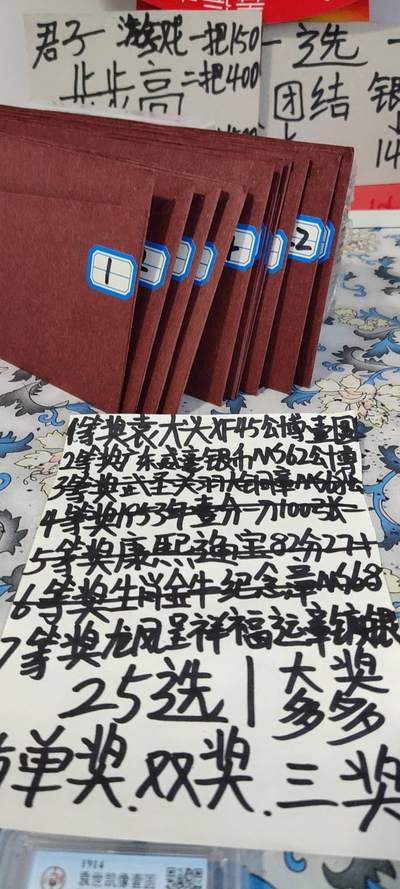 君子 游戏一把150
步步高 二把400
一选一
团结 银
14
1
2
1等奖袁大头XF45公博壹圆
2等奖广东咸章银币MS62公博
3等奖武圣关羽大铜章MS68公
4等奖1953年壹分一刀100张
5等奖康熙通宝82分27十
6等奖生肖金牛纪念章MS68
7等奖龙凤呈祥福运章镐银
25选1 大奖
多多
单奖.双奖.三奖
1914
袁世凯像壹圆